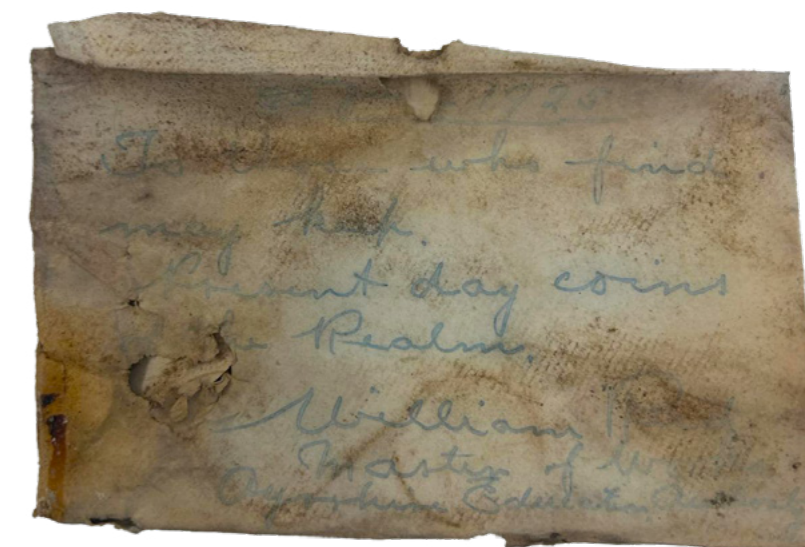 1920
To those who find
may keep.
Present day coins
the Realm.
William
Master of Works
Ayrshire Education Authority